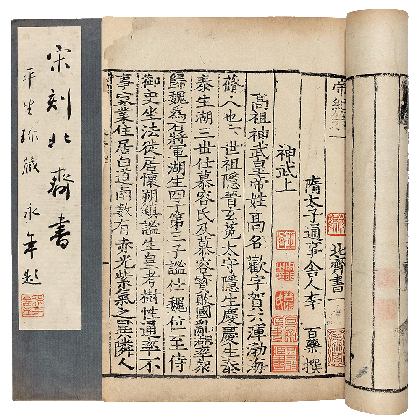 宋刻北齊書
平生珍藏 永年題
帝紀第
北齊書一
隋太子通事舍人李 百藥 撰
神武上
高祖神武皇帝姓高名歡字賀六渾渤海
蓨人也六世祖隱晉玄菟太守隱生慶慶生泰
泰生湖三世仕慕容氏及慕容寶敗國亂湖率眾
歸魏為右將軍湖生四子第三子謐仕魏位至侍
御史坐法徙居懷朔鎮謐生皇考樹性通率不
事家業住居白道南數有赤光紫氣之異隣人